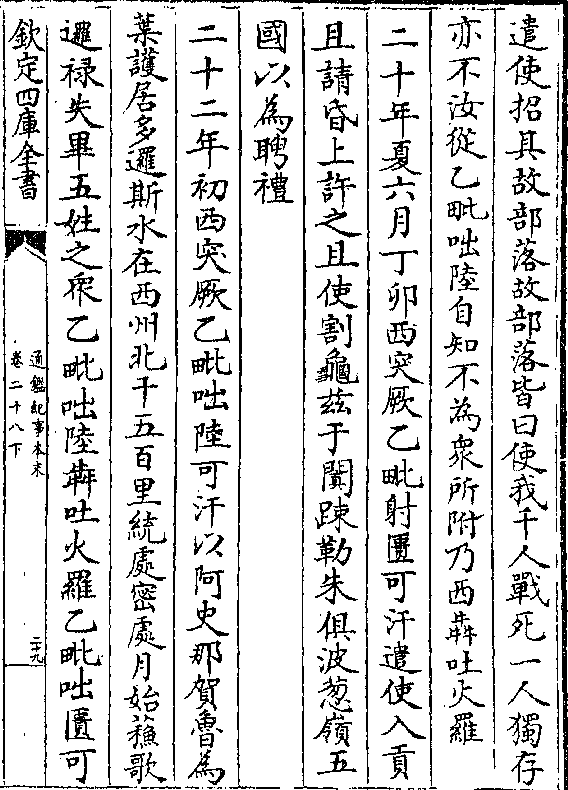 遣使招其故部落故部落皆曰使我千人戰死一人獨存
亦不汝從乙毗咄陸自知不為衆所附乃西犇吐火羅
二十年夏六月丁卯西突厥乙毗射匱可汗遣使入貢
且請昏上許之且使割龜兹于闐踈勒朱俱波葱嶺五
國以為聘禮
二十二年初西突厥乙毗咄陸可汗以阿史那賀魯為
葉護居多邏斯水在西州北千五百里統處密處月始蘓歌
邏禄失畢五姓之衆乙毗咄陸犇吐火羅乙毗咄匱可
欽定四庫全書
通鑑紀事本末
卷二十八下
二十九